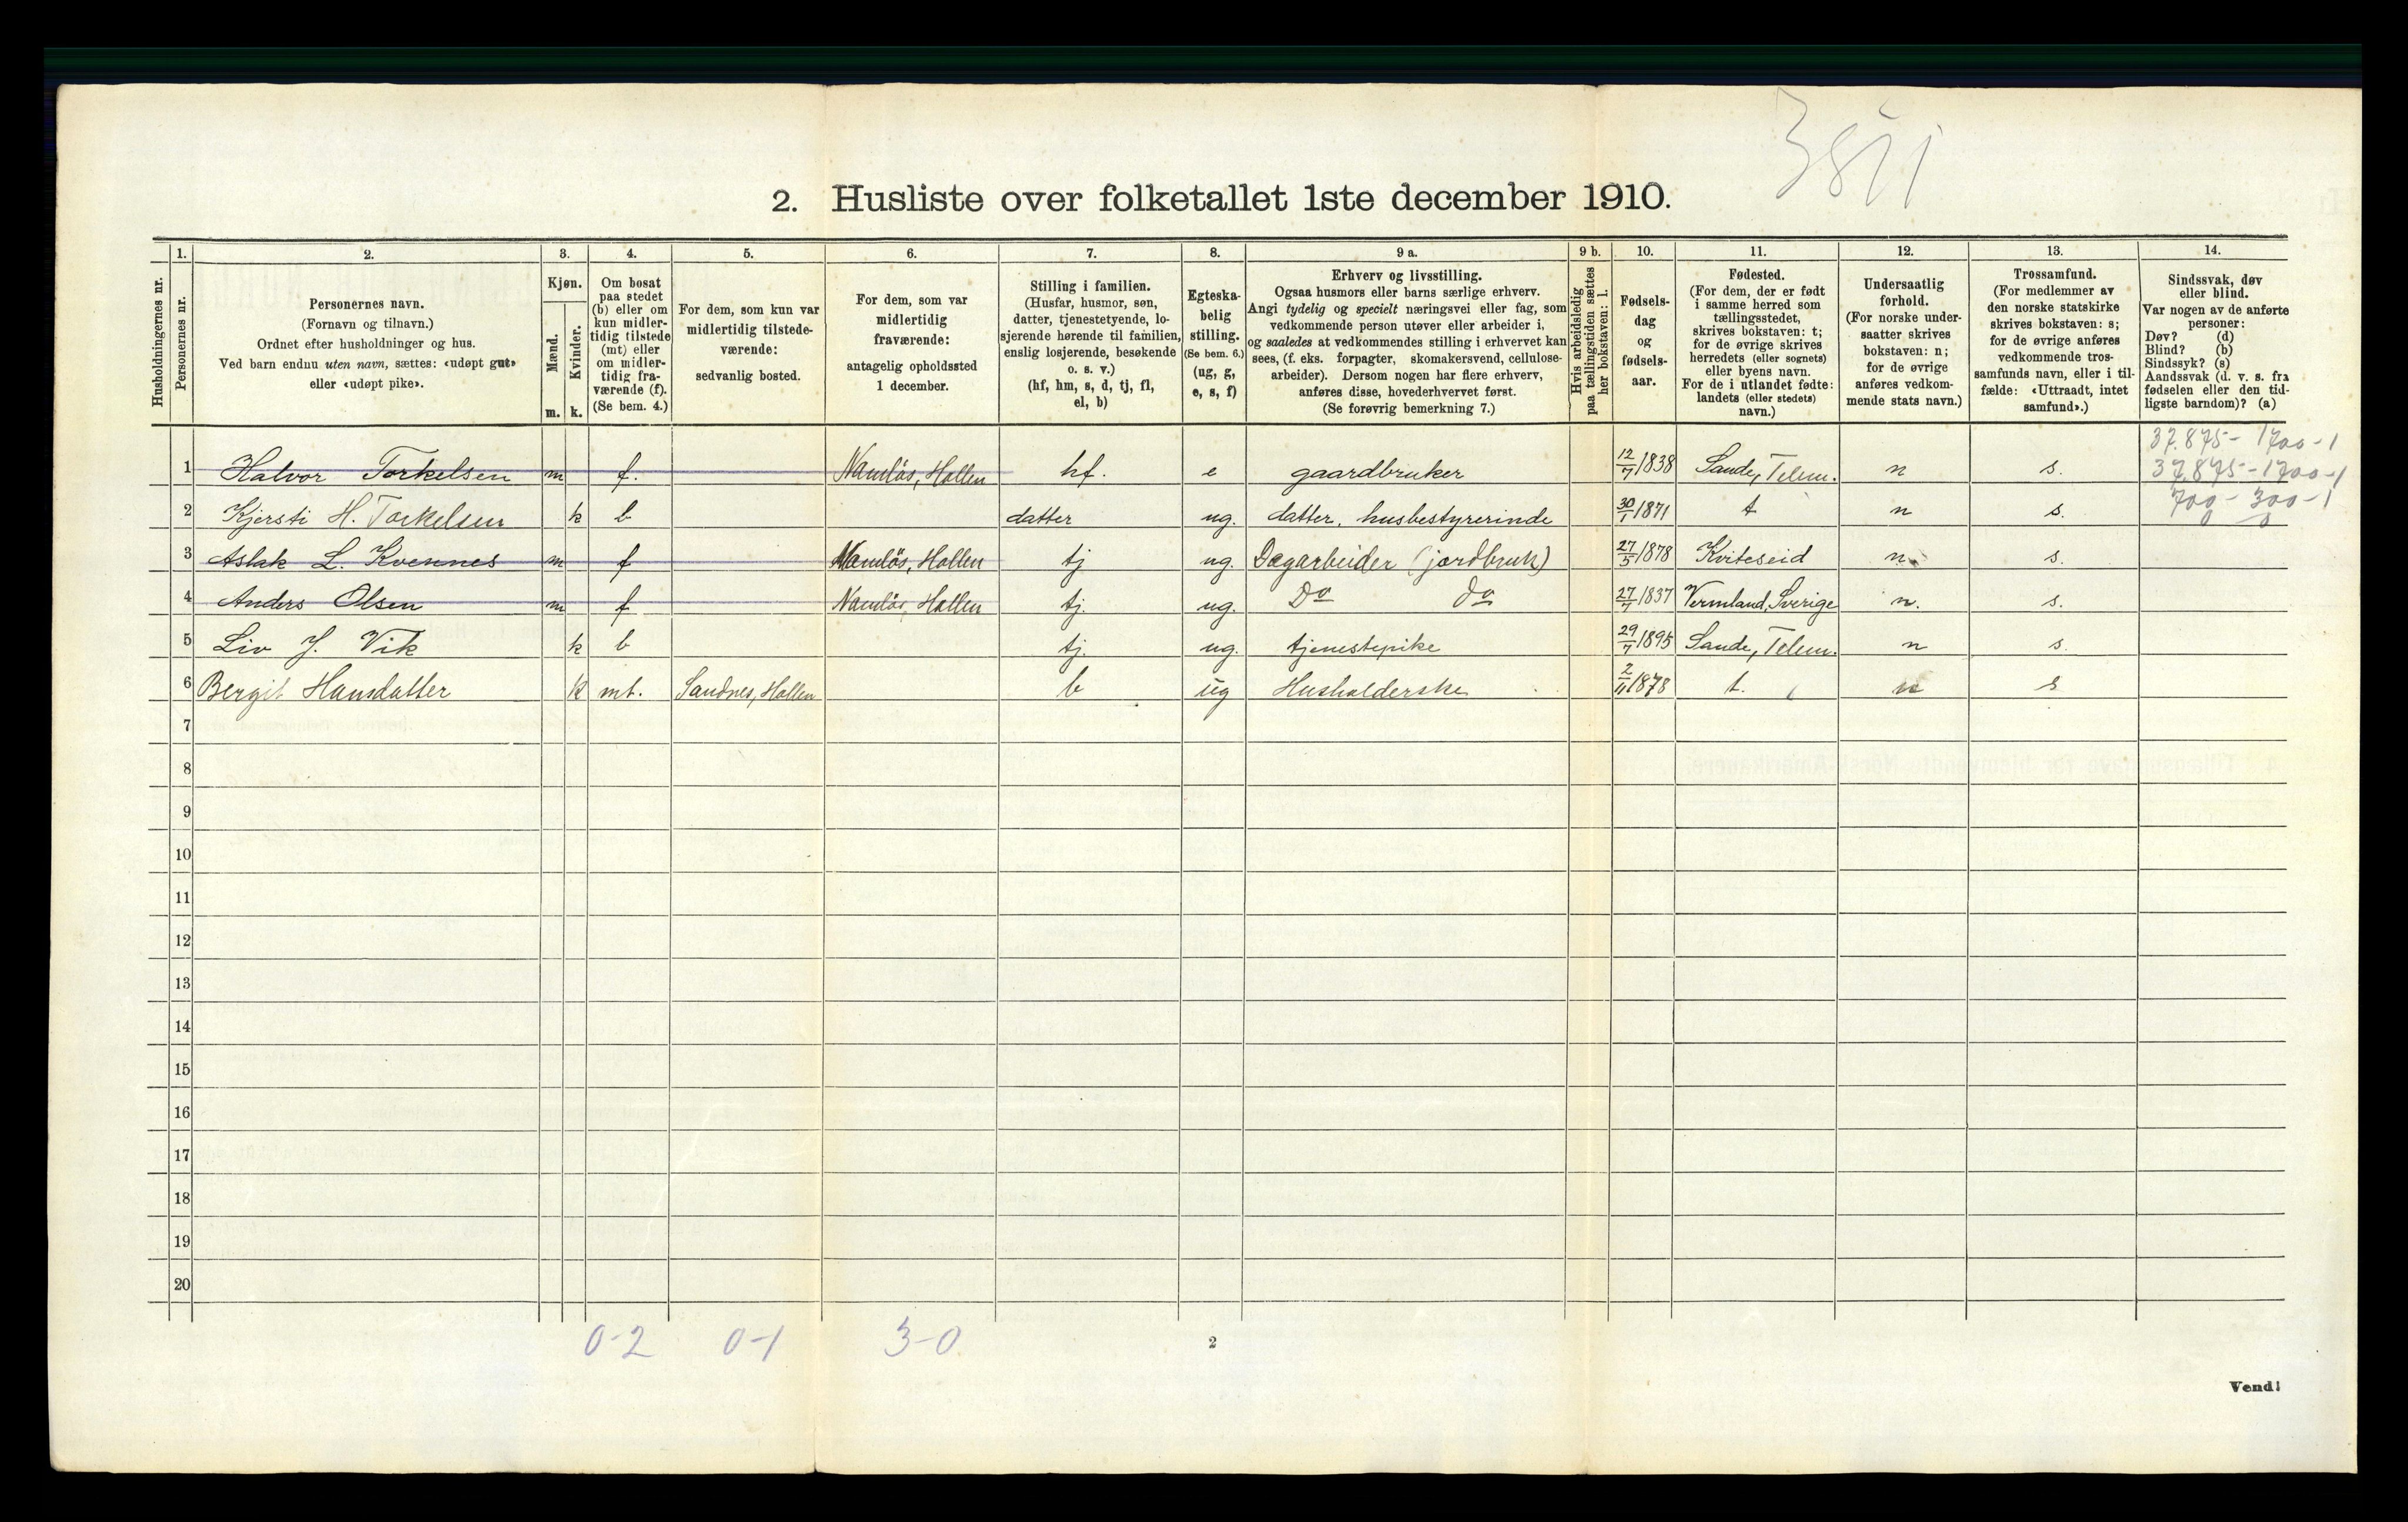 3871
2. Husliste over folketallet 1ste december 1910.
Husholdningernes nr.
1. Personernes nr.
2. Personernes navn.
(Fornavn og tilnavn.)
Ordnet efter husholdninger og hus.
Ved barn endnu uten navn, sættes: «udøpt gut»
eller «udøpt pike».
3. Kjøn.
Mænd. m.
Kvinder. k.
4. Om bosat
paa stedet
(b) eller om
kun midler-
tidig tilstede
(mt) eller
om midler-
tidig fra-
værende (f).
(Se bem. 4.)
5. For dem, som kun var
midlertidig tilstede-
værende:
sedvanlig bosted.
6. For dem, som var
midlertidig
fraværende:
antagelig opholdssted
1 december.
7. Stilling i familien.
(Husfar, husmor, søn,
datter, tjenestetyende, lo-
sjerende hørende til familien,
enslig losjerende, besøkende
o. s. v.)
(hf, hm, s, d, tj, fl,
el, b)
8. Egteska-
belig
stilling.
(Se bem. 6.)
(ug, g,
e, s, f)
9 a. Erhverv og livsstilling.
Ogsaa husmors eller barns særlige erhverv.
Angi tydelig og specielt næringsvei eller fag, som
vedkommende person utøver eller arbeider i,
og saaledes at vedkommendes stilling i erhvervet kan
sees, (f. eks. forpagter, skomakersvend, cellulose-
arbeider). Dersom nogen har flere erhverv,
anføres disse, hovederhvervet først.
(Se forøvrig bemerkning 7.)
9 b. Hvis arbeidsledig
paa tællingstiden sættes
her bokstaven: l.
10. Fødsels-
dag
og
fødsels-
aar.
11. Fødested.
(For dem, der er født
i samme herred som
tællingsstedet,
skrives bokstaven: t;
for de øvrige skrives
herredets (eller sognets)
eller byens navn.
For de i utlandet fødte:
landets (eller stedets)
navn.)
12. Undersaatlig
forhold.
(For norske under-
saatter skrives
bokstaven: n;
for de øvrige
anføres vedkom-
mende stats navn.)
13. Trossamfund.
(For medlemmer av
den norske statskirke
skrives bokstaven: s;
for de øvrige anføres
vedkommende tros-
samfunds navn, eller i til-
fælde: «Uttraadt, intet
samfund».)
14. Sindssvak, døv
eller blind.
Var nogen av de anførte
personer:
Døv? (d)
Blind? (b)
Sindssyk? (s)
Aandssvak (d. v. s. fra
fødselen eller den tid-
ligste barndom)? (a)
37.875 - 1700 - 1
1 Halvor Torkelsen m f. Namløs, Hollen hf. e gaardbruker 12/7 1838 Sande, Telem. n s. 37.875 - 1700 - 1
2 Kjersti H. Torkelsen k b datter ug. datter, husbestyrerinde 30/1 1871 t n s. 700 - 300 - 1
0 0
3 Aslak L. Kvennes m f Namløs, Hollen tj ug. Dagarbeider (jordbruk) 27/5 1878 Kviteseid n. s.
4 Anders Olsen m f Namløs, Hollen tj. ug. Do do 27/7 1837 Vermland, Sverige n. s.
5 Liv J. Vik k b tj. ug. tjenestepike 29/7 1895 Sande, Telem. n s.
6 Bergit Hansdatter k mt. Sandnes, Hollen b ug Husholderske 2/11 1878 t. n s
7
8
9
10
11
12
13
14
15
16
17
18
19
20
0-2 0-1 3-0
2
Vend!